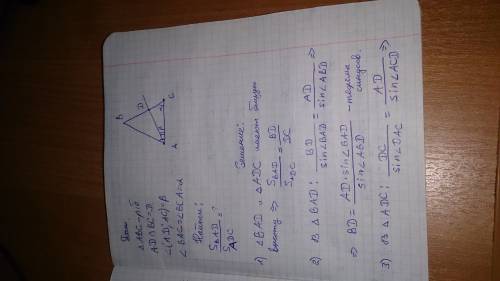 Дано:
△ABC - р/б
AD∩BC=D.
∠(AD;AC)=β
∠BAC=∠BCA=α
B
D
A
C
Найти:
S_BAD/S_ADC = ?
Решение:
1) ∠BAD и △ADC имеют общую
высоту ⇒ S_BAD/S_ADC = BD/DC
2) В △BAD: BD/sin∠BAD = AD/sin∠ABD ⇒
⇒ BD = AD·sin∠BAD/sin∠ABD - теорема синусов.
3) В △ADC: DC/sin∠DAC = AD/sin∠ACD ⇒